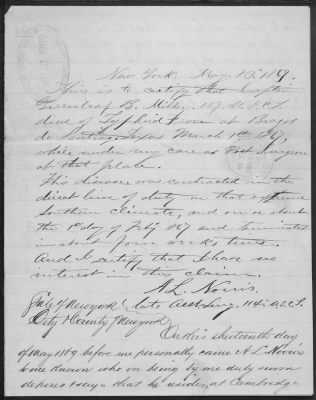 New York. May 13" 1869.
This is to certify that Captain
Greenleaf B. 117" U.S.C.T.
died of Typhoid Fever at Brazos
de Santiago Texas March 1st 1867,
while under my care as Post Surgeon
at that place.
This disease was contracted in the
direct line of duty in that extreme
Southern Climate, and on or about
the 1st day of Feb'y 1867 and terminated
in about four weeks time.
And I certify that I have no
interest in this claim.
A. L. Norris.
State of New york late Asst Surg. 114" U.S.C.T.
City & County of New york
On this thirteenth day
of May 1869 before me personally came A L Norris
to me known who on being by me duly sworn
deposes & says that he resides at Cambridge